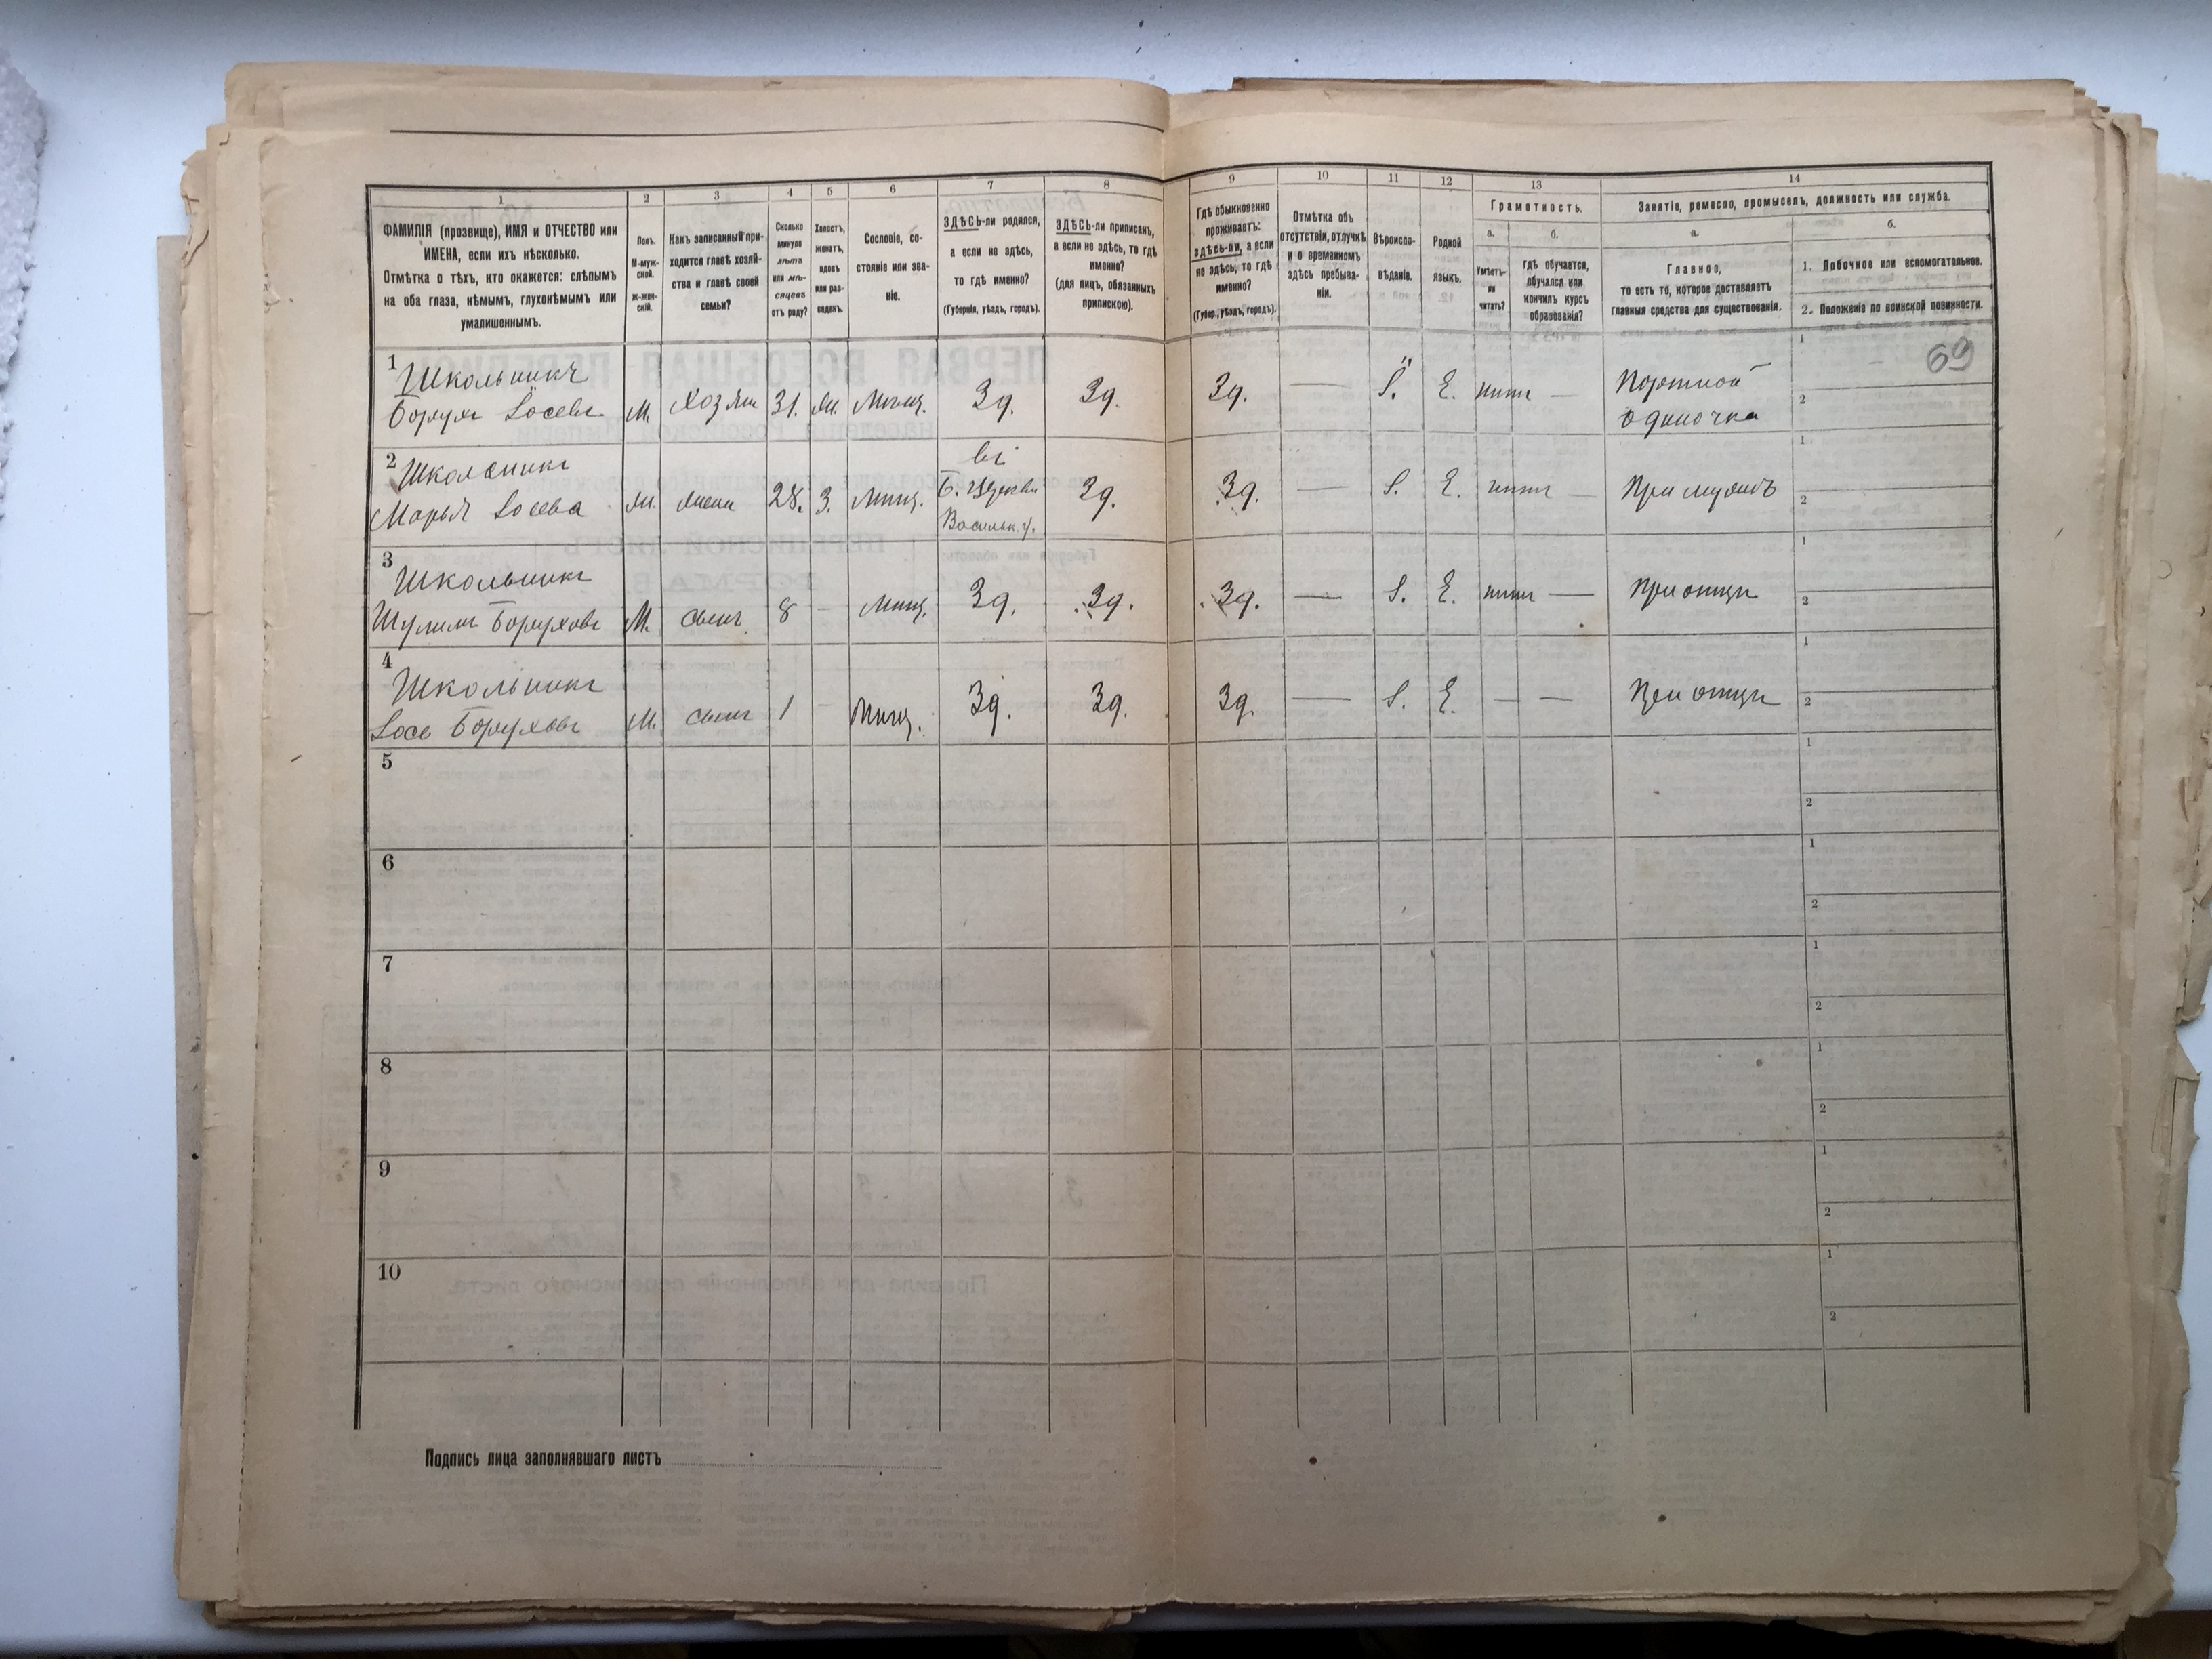 1
2
3
4
5
6
7
8
9
10
11
12
13
14
ФАМИЛІЯ (прозвище), ИМЯ и ОТЧЕСТВО или
ИМЕНА, если ихъ нѣсколько.
Отмѣтка о тѣхъ, кто окажется: слѣпымъ
на оба глаза, нѣмымъ, глухонѣмымъ или
умалишеннымъ.
Полъ.
М-муж-
ской.
ж-жен-
скій.
Какъ записанный при-
ходится главѣ хозяй-
ства и главѣ своей
семьи?
Сколько
минуло
лѣтъ
или мѣ-
сяцевъ
отъ роду?
Холостъ,
женатъ,
вдовъ
или раз-
веденъ.
Сословіе, со-
стояніе или зва-
ніе.
ЗДѢСЬ-ли родился,
а если не здѣсь,
то гдѣ именно?
(Губернія, уѣздъ, городъ).
ЗДѢСЬ-ли приписанъ,
а если не здѣсь, то гдѣ
именно?
(для лицъ, обязанныхъ
припискою).
Гдѣ обыкновенно
проживаетъ:
здѣсь-ли, а если
не здѣсь, то гдѣ
именно?
(Губер., уѣздъ, городъ).
Отмѣтка объ
отсутствіи, отлучкѣ
и о временномъ
здѣсь пребыва-
ніи.
Вѣроиспо-
вѣданіе.
Родной
языкъ.
Грамотность.
а.
б.
Умѣетъ-
ли
читать?
гдѣ обучается,
обучался или
кончилъ курсъ
образованія?
Занятіе, ремесло, промыселъ, должность или служба.
а.
б.
Главное,
то есть то, которое доставляетъ
главныя средства для существованія.
1. Побочное или вспомогательное.
2. Положеніе по воинской повинности.
69
1 Школьникъ
Борухъ Іосевъ М. Хозяин 31. Ж. Мѣщ. Зд. Зд. Зд. — І. Е. нѣтъ — Портной
одиночка
1
2
2 Школьникъ въ
Марья Іосева Ж. жена 28. З. Мѣщ. Б. Церкви Зд. Зд. — І. Е. нѣтъ — При мужѣ
Васильк. у.
1
2
3 Школьникъ
Шулимъ Боруховъ М. сынъ 8 — Мѣщ. Зд. Зд. Зд. — І. Е. нѣтъ — При отцѣ
1
2
4 Школьникъ
Іось Боруховъ М. сынъ 1 — Мѣщ. Зд. Зд. Зд. — І. Е. — — При отцѣ
1
2
5
1
2
6
1
2
7
1
2
8
1
2
9
1
2
10
1
2
Подпись лица заполнявшаго листъ